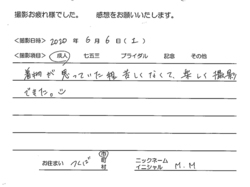 撮影お疲れ様でした。 感想をお願いいたします。
<撮影日時> 2020 年 6 月 6 日 (土)
<撮影項目> 成人 七五三 ブライダル 記念 その他
着物が思っていた程苦しくなくて、楽しく撮影
できた。
お住まい つくば 市 町 村 ニックネーム イニシャル M.M